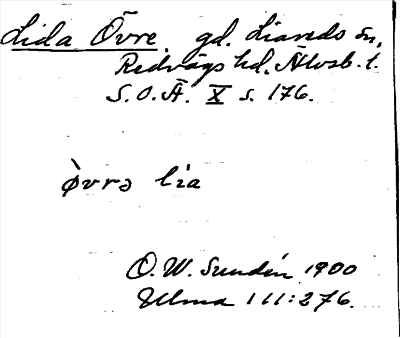 Lida Övre. gd. Liareds sn,
Redvägs hd. Älvsb. l.
S.O.Ä. X s. 176.
òvrə lia
O. W. Sundén 1900
Ulma 111:276.